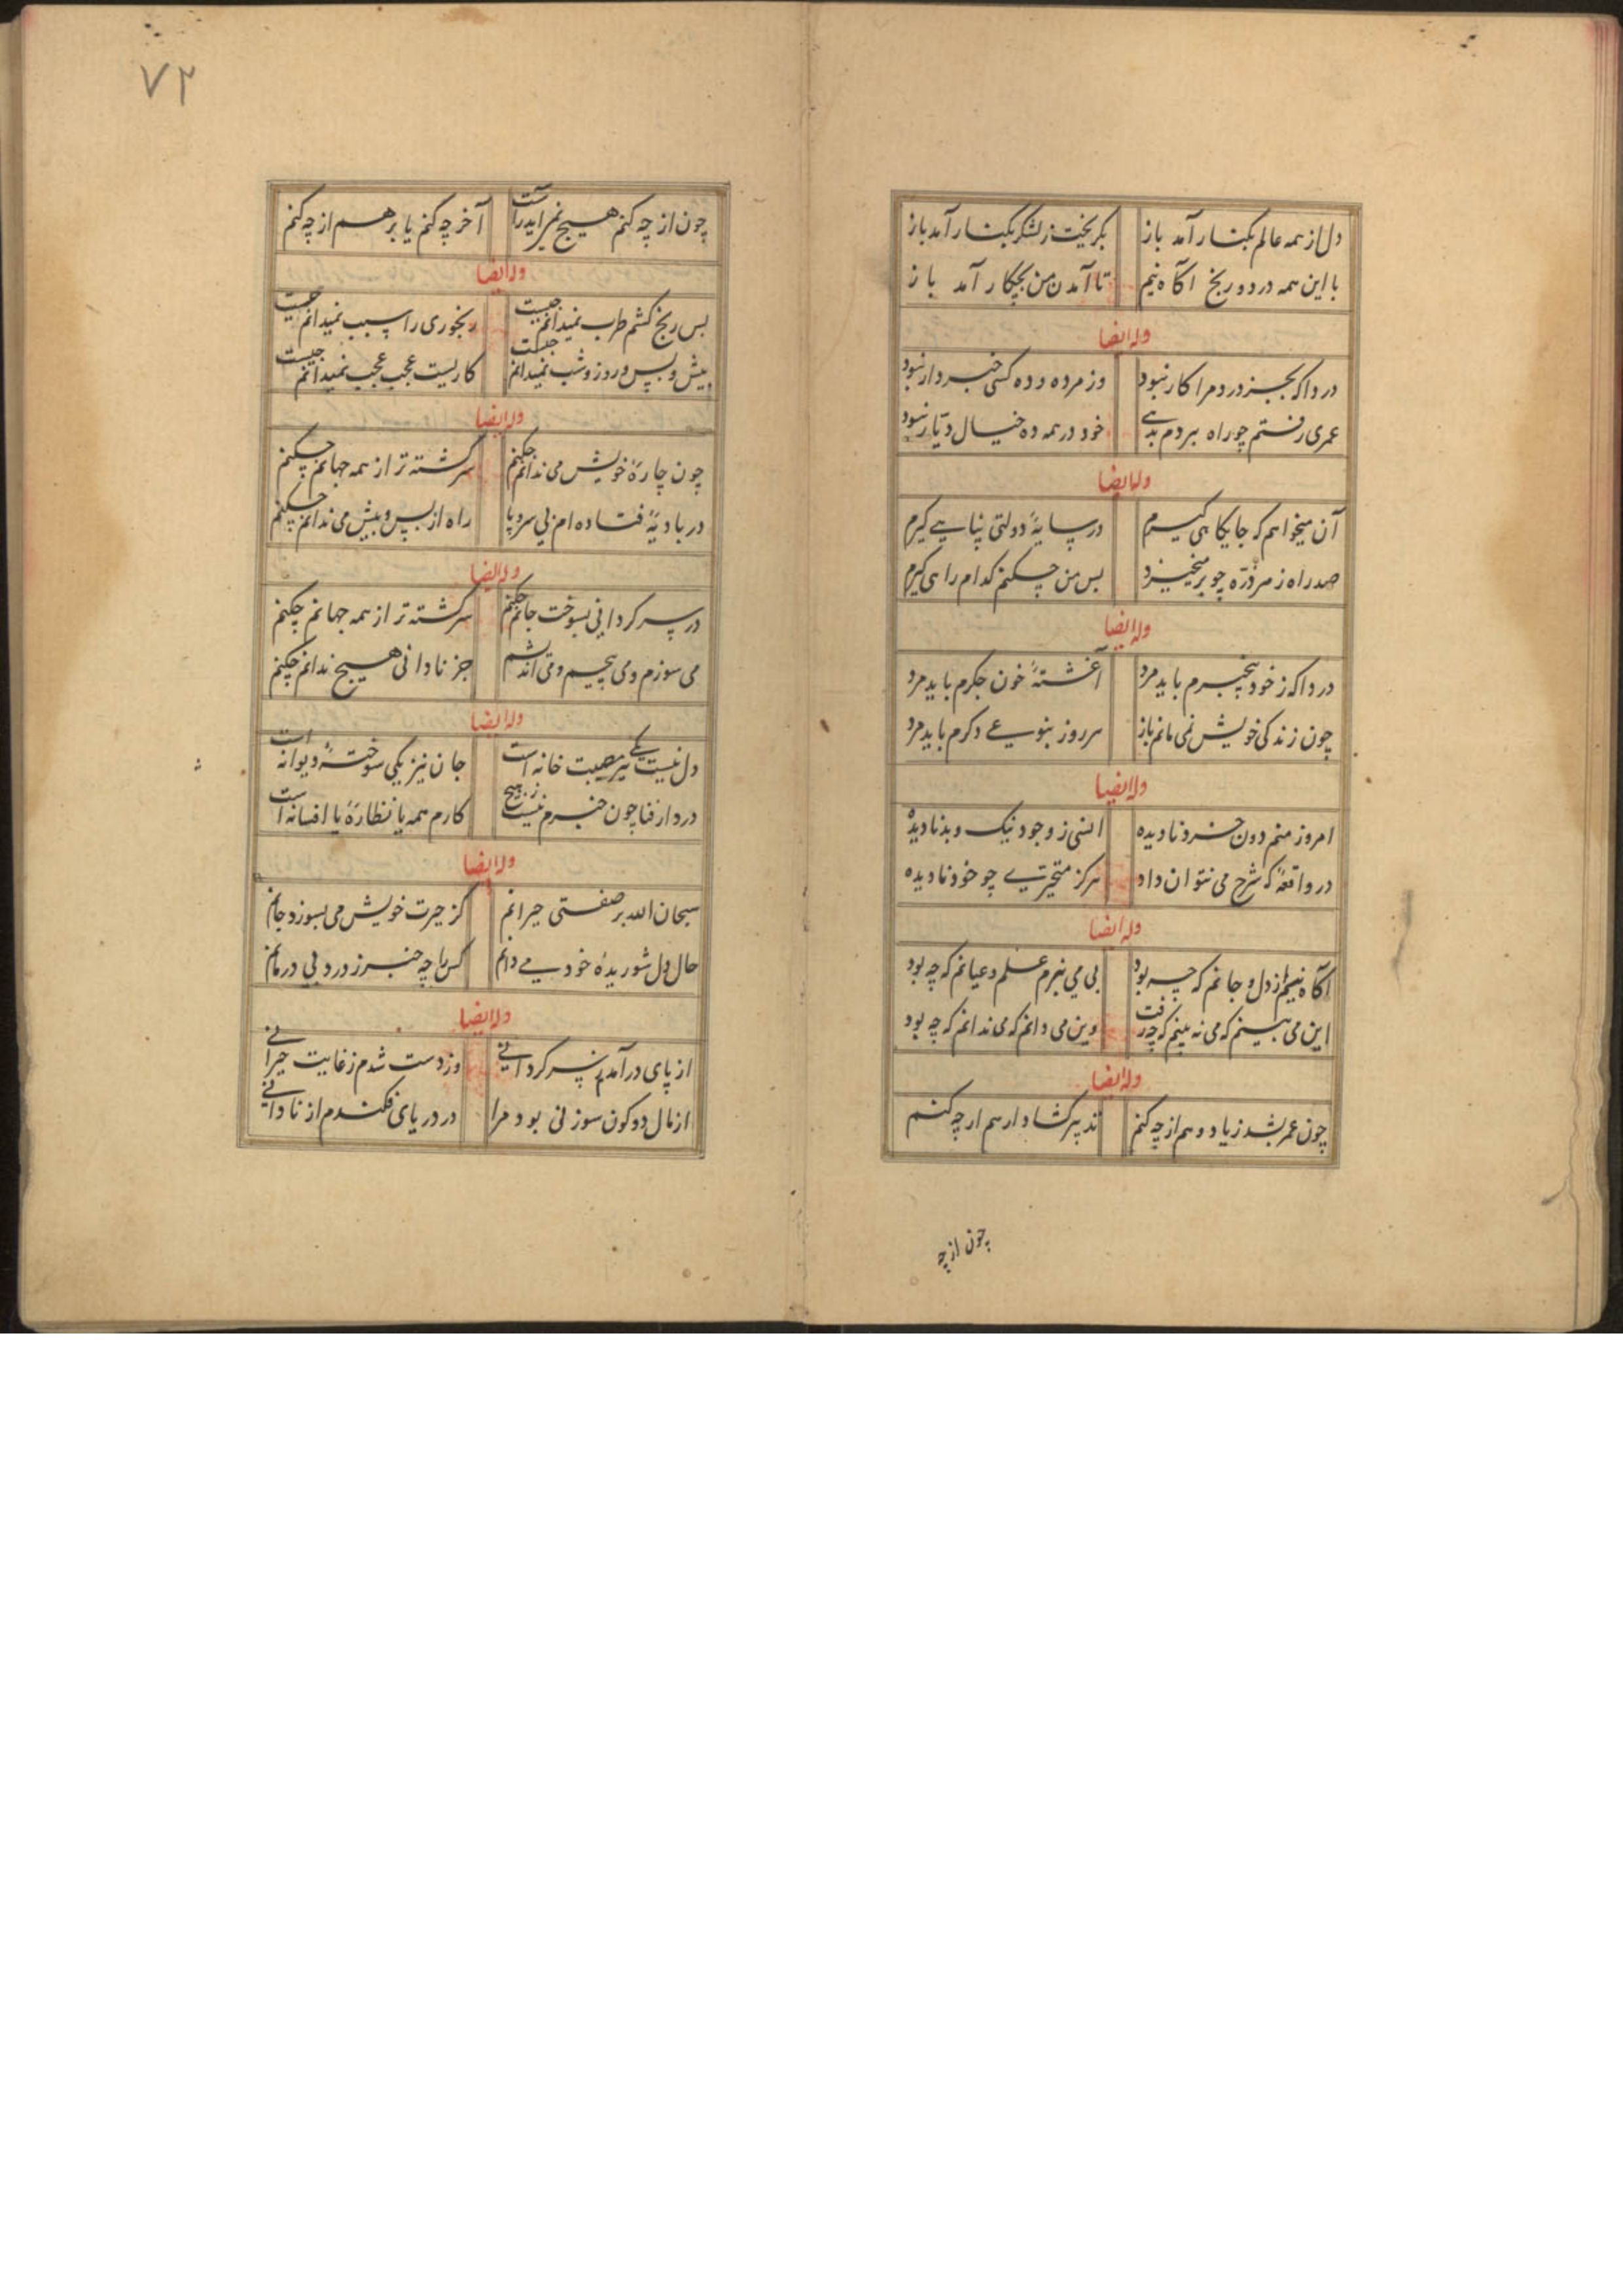 دل از همه عالم بکنار آمد باز بگریخت ز لشکر بکنار آمد باز
با این همه درد و رنج آگاه نیم تا آمدن من بچکار آمد باز
وله ایضا
دردا که بجز درد مرا کار نبود وز مرده و ده کسی خبردار نبود
عمری رفتم چو راه بردم بدهی خود در همه ده خیال دیار نبود
وله ایضا
آن میخواهم که جایگاهی گیرم در سایهٔ دولتی پناهی گیرم
صد راه ز هر ذره چو بر میخیزد پس من چکنم کدام راهی گیرم
وله ایضا
دردا که ز خود بیخبرم باید مرد آغشتهٔ خون جگرم باید مرد
چون زندگی خویش نمی مانم باز هر روز بنوعی دگرم باید مرد
وله ایضا
امروز منم دون خرد نادیده انسی ز وجود نیک و بد نادیده
در واقعهٔ که شرح می نتوان داد هرگز متحیری چو خود نادیده
وله ایضا
آگاه نیم از دل و جانم که چه بود پی می نبرم علم و عیانم که چه بود
این می بینم که می نه بینم که چه رفت وین می دانم که می ندانم که چه بود
وله ایضا
چون عمر بشد زیاد و هم از چه کنم تدبیر گشاد از هم از چه کنم
چون از چه
۷۲
چون از چه کنم هیچ نمی آید راست آخر چه کنم یا برهم از چه کنم
وله ایضا
بس رنج کشم طرب نمیدانم چیست رنجوری را سبب نمیدانم چیست
پیش و پس و روز و شب نمیدانم چیست کاریست عجب عجب نمیدانم چیست
وله ایضا
چون چارهٔ خویش می ندانم چکنم سرگشته تر از همه جهانم چکنم
در بادیهٔ فتاده ام بی سر و پا راه از پس و پیش می ندانم چکنم
وله ایضا
در سرگردانی بسوخت جانم چکنم سرگشته تر از همه جهانم چکنم
می سوزم و می پیچم و می اندیشم جز نادانی هیچ ندانم چکنم
وله ایضا
دل نیست یکی پر مصیبت خانه است جان نیز یکی سوختهٔ دیوانه است
درد از فنا چون خبرم نیست ز هیچ کارم همه یا نظارهٔ یا افسانه است
وله ایضا
سبحان الله بر صفتی حیرانم کز حیرت خویش می بسوزد جانم
حال دل شوریدهٔ خود می دانم کس را چه خبر ز درد بی درمانم
وله ایضا
از پای درآمدم ز سرگردانی وز دست شدم ز غایت حیرانی
از مال دو کون سوزنی بود مرا در دریای فکندم از نادانی